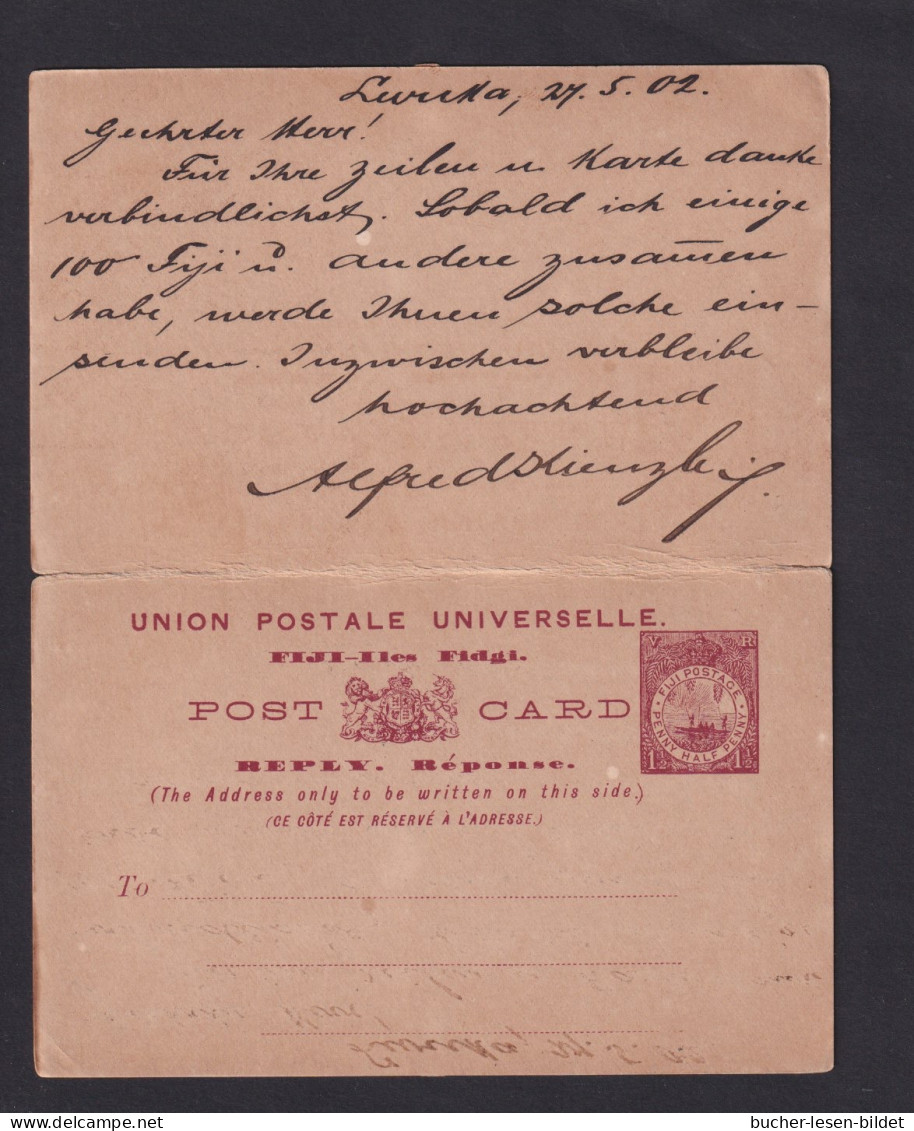 Levuka, 27. 5. 02.
Geehrter Herr!
Für Ihre Zeilen u. Karte danke
verbindlichst. Sobald ich einige
100 Fiji u. andere zusam̅en
habe, werde Ihnen solche ein-
senden. Inzwischen verbleibe
hochachtend
Alfred Kienzle jr.
UNION POSTALE UNIVERSELLE.
FIJI-Iles Fidgi.
POST CARD
V R
FIJI POSTAGE
PENNY HALF PENNY
1½ 1½
REPLY. Réponse.
(The Address only to be written on this side.)
(CE CÔTÉ EST RÉSERVÉ À L'ADRESSE.)
To
bucher-lesen-bildet